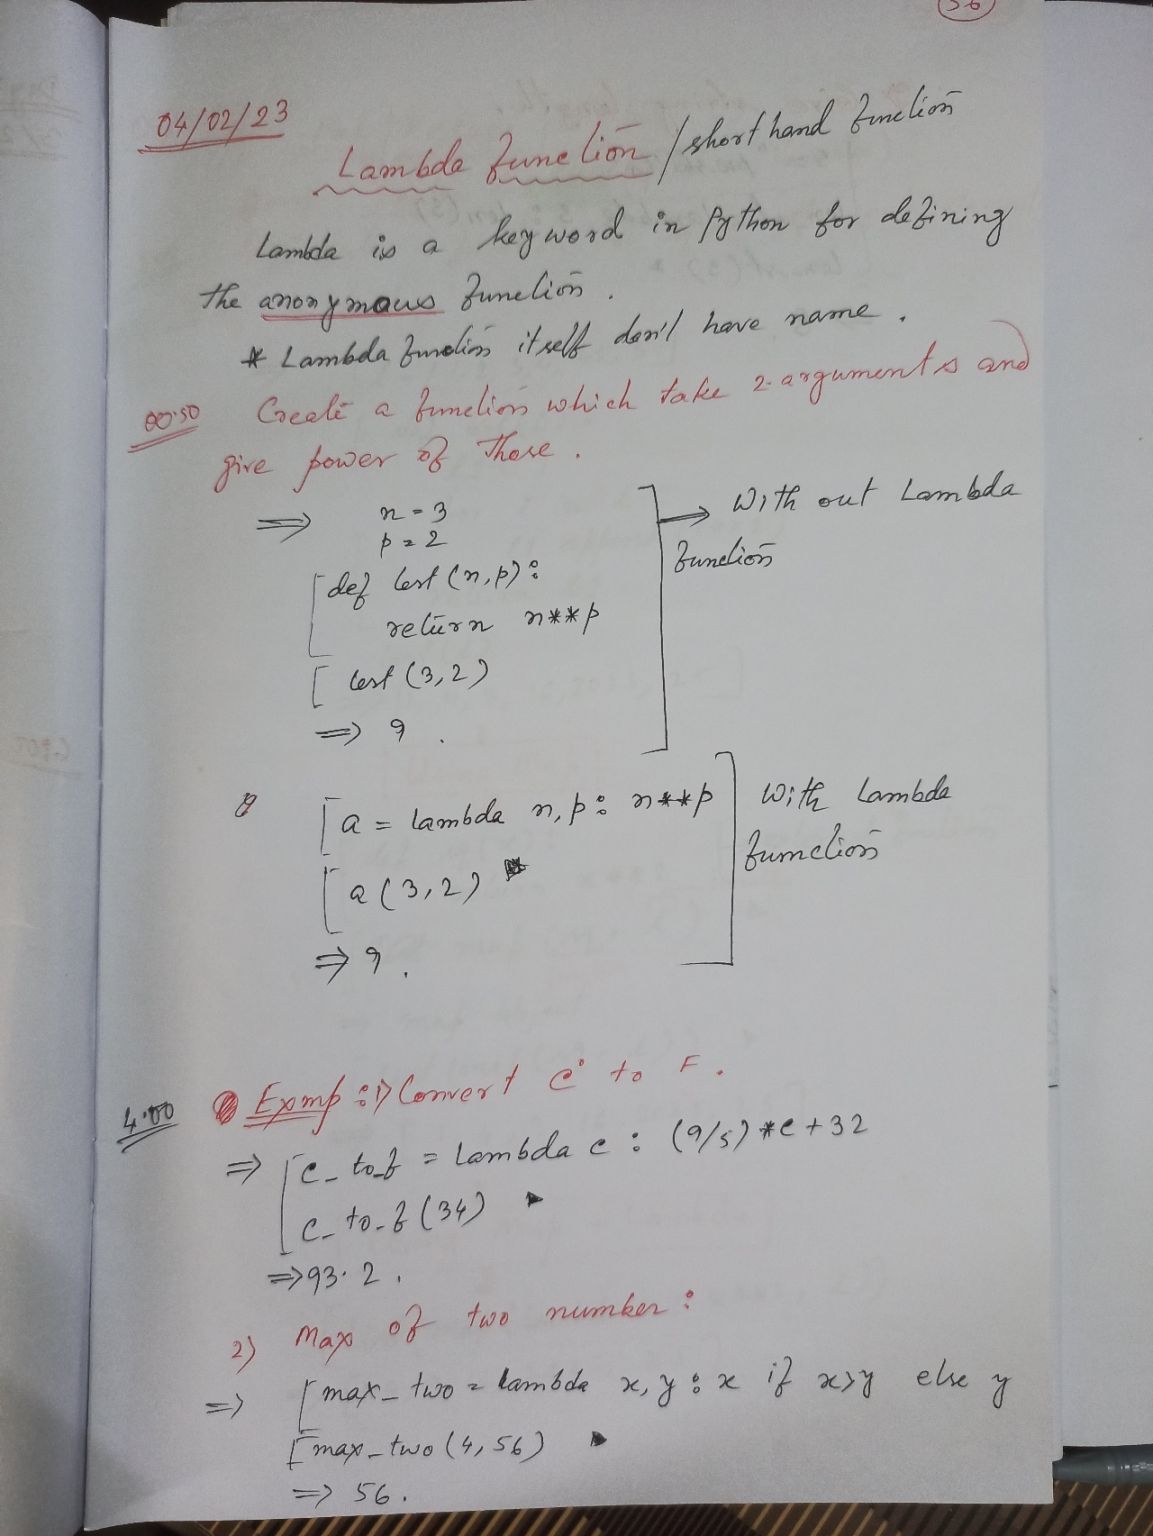 36
04/02/23
Lambda function / short hand function
Lambda is a keyword in Python for defining
the anonymous function.
* Lambda function itself don't have name.
00:50 Create a function which take 2-arguments and
give power of those.
⇒ n = 3
p = 2
→ With out Lambda
function
def test (n,p):
return n**p
test (3,2)
⇒ 9.
a = lambda n,p: n**p
With Lambda
function
a (3,2)
⇒ 9.
4.00 Exmp: 1) Convert c° to F.
⇒ c_to_f = lambda c : (9/5)*c+32
c_to_f (34)
⇒ 93.2.
2) Max of two number:
⇒ max_two = lambda x, y : x if x>y else y
max_two (4,56)
⇒ 56.